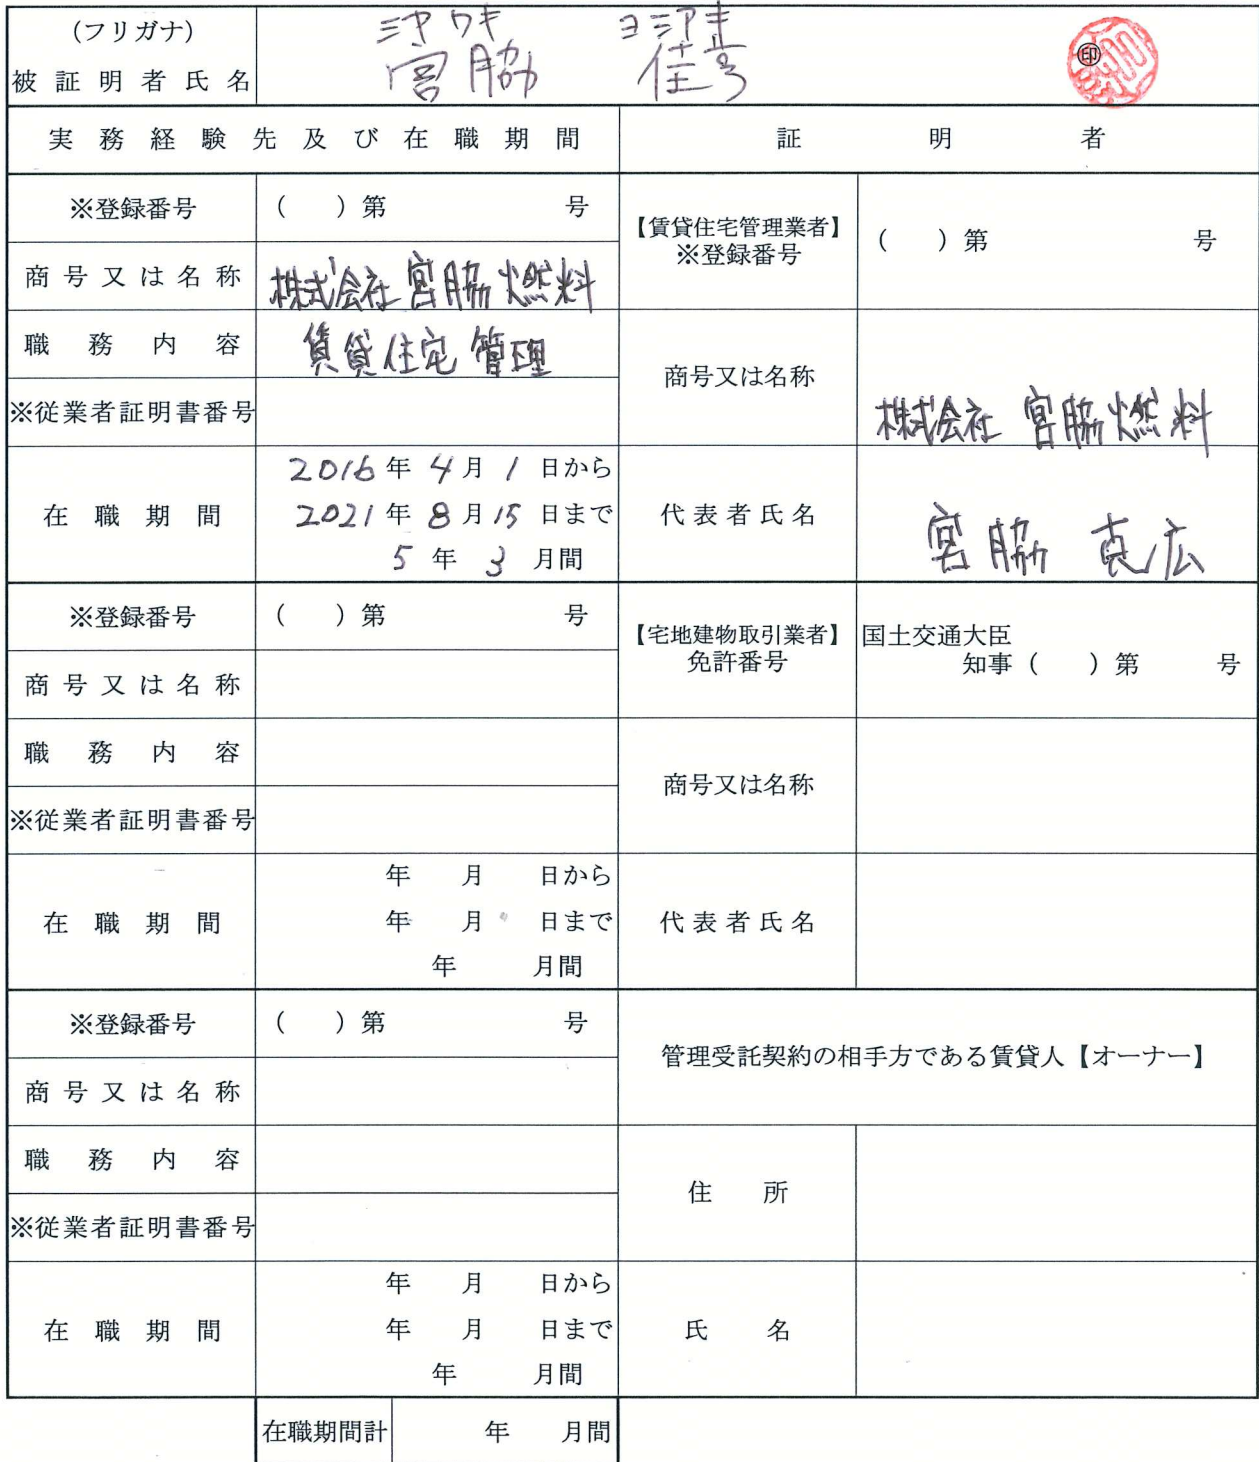 (フリガナ) ミヤワキ ヨシアキ
被証明者氏名 宮脇 佳彦 ㊞
実務経験先及び在職期間 証明者
※登録番号 ( )第 号 【賃貸住宅管理業者】※登録番号 ( )第 号
商号又は名称 株式会社宮脇燃料
職務内容 賃貸住宅管理 商号又は名称 株式会社 宮脇燃料
※従業者証明書番号
在職期間 2016年4月1日から
2021年8月15日まで
5年3月間
代表者氏名 宮脇 真広
※登録番号 ( )第 号 【宅地建物取引業者】免許番号 国土交通大臣
知事( )第 号
商号又は名称
職務内容 商号又は名称
※従業者証明書番号
在職期間 年 月 日から
年 月 日まで
年 月間
代表者氏名
※登録番号 ( )第 号 管理受託契約の相手方である賃貸人【オーナー】
商号又は名称
職務内容 住所
※従業者証明書番号
在職期間 年 月 日から
年 月 日まで
年 月間
氏名
在職期間計 年 月間